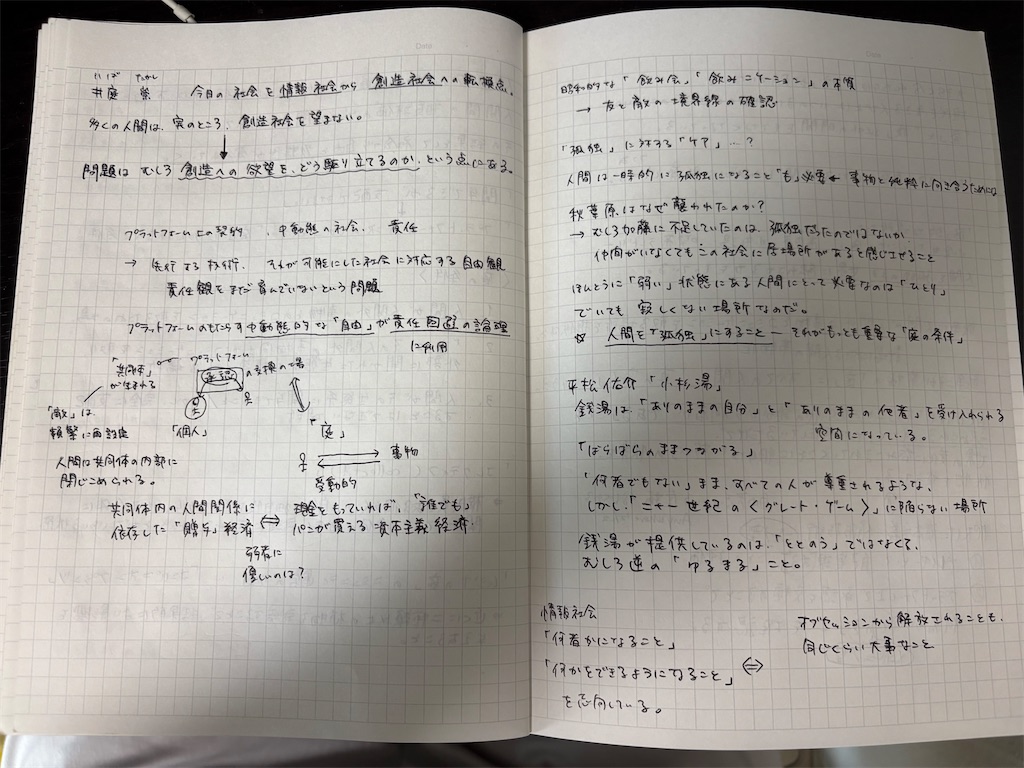 Date
いば たかし
井庭 崇 今日の社会を情報社会から創造社会への転換点。
多くの人間は、実のところ、創造社会を望まない。
↓
問題はむしろ創造への欲望を、どう駆り立てるのか、という点にある。
プラットフォーム上の契約、中動態の社会、責任
→ 先行する技術、それが可能にした社会に対応する自由観
責任観をまだ育んでいないという問題
プラットフォームのもたらす中動態的な「自由」が責任回避の論理
に利用
「共同体」
が生まれる
プラットフォーム
承認の交換の場
「敵」は
頻繁に再設定
「個人」
「庭」
事物
受動的
人間は共同体の内部に
閉じこめられる。
共同体内の人間関係に
依存した「贈与」経済
⇔
現金をもっていれば、「誰でも」
パンが買える資本主義経済
弱者に
優しいのは?
Date
昭和的な「飲み会」「飲みニケーション」の本質
→ 友と敵の境界線の確認
「孤独」に対する「ケア」…?
人間は一時的に孤独になること「も」必要 ← 事物と純粋に向き合うためには
秋葉原はなぜ襲われたのか?
→ むしろ加藤に不足していたのは、孤独だったのではないか、
仲間がいなくてもこの社会に居場所があると感じさせること
ほんとうに「弱い」状態にある人間にとって必要なのは「ひとり」
でいても寂しくない場所なのだ。
☆ 人間を「孤独」にすること ー それがもっとも重要な「庭の条件」
平松佑介「小杉湯」
銭湯は、「ありのままの自分」と「ありのままの他者」を受け入れられる
空間になっている。
「ばらばらのままつながる」
「何者でもない」まま、すべての人が尊重されるような、
しかし、「二十一世紀の〈グレート・ゲーム〉」に陥らない場所
銭湯が提供しているのは、「ととのう」ではなくて、
むしろ逆の「ゆるまる」こと。
情報社会
「何者かになること」
「何かをできるようになること」
を志向している。
⇔
オブセッションから解放されることも、
同じくらい大事なこと